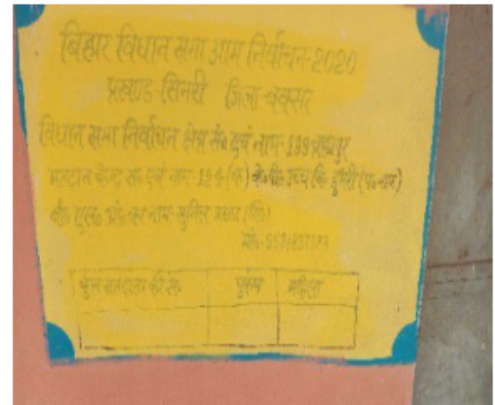 बिहार विधान सभा आम निर्वाचन-2020
प्रखण्ड सिमरी जिला-बक्सर
विधान सभा निर्वाचन क्षेत्र सं० एवं नाम-199 ब्रह्मपुर
मतदान केन्द्र सं० एवं नाम-184 उच्च वि० डुमरी
बी० एल० ओ० का नाम-सुनिल
मो०-
कुल मतदाता की सं० पुरुष महिला